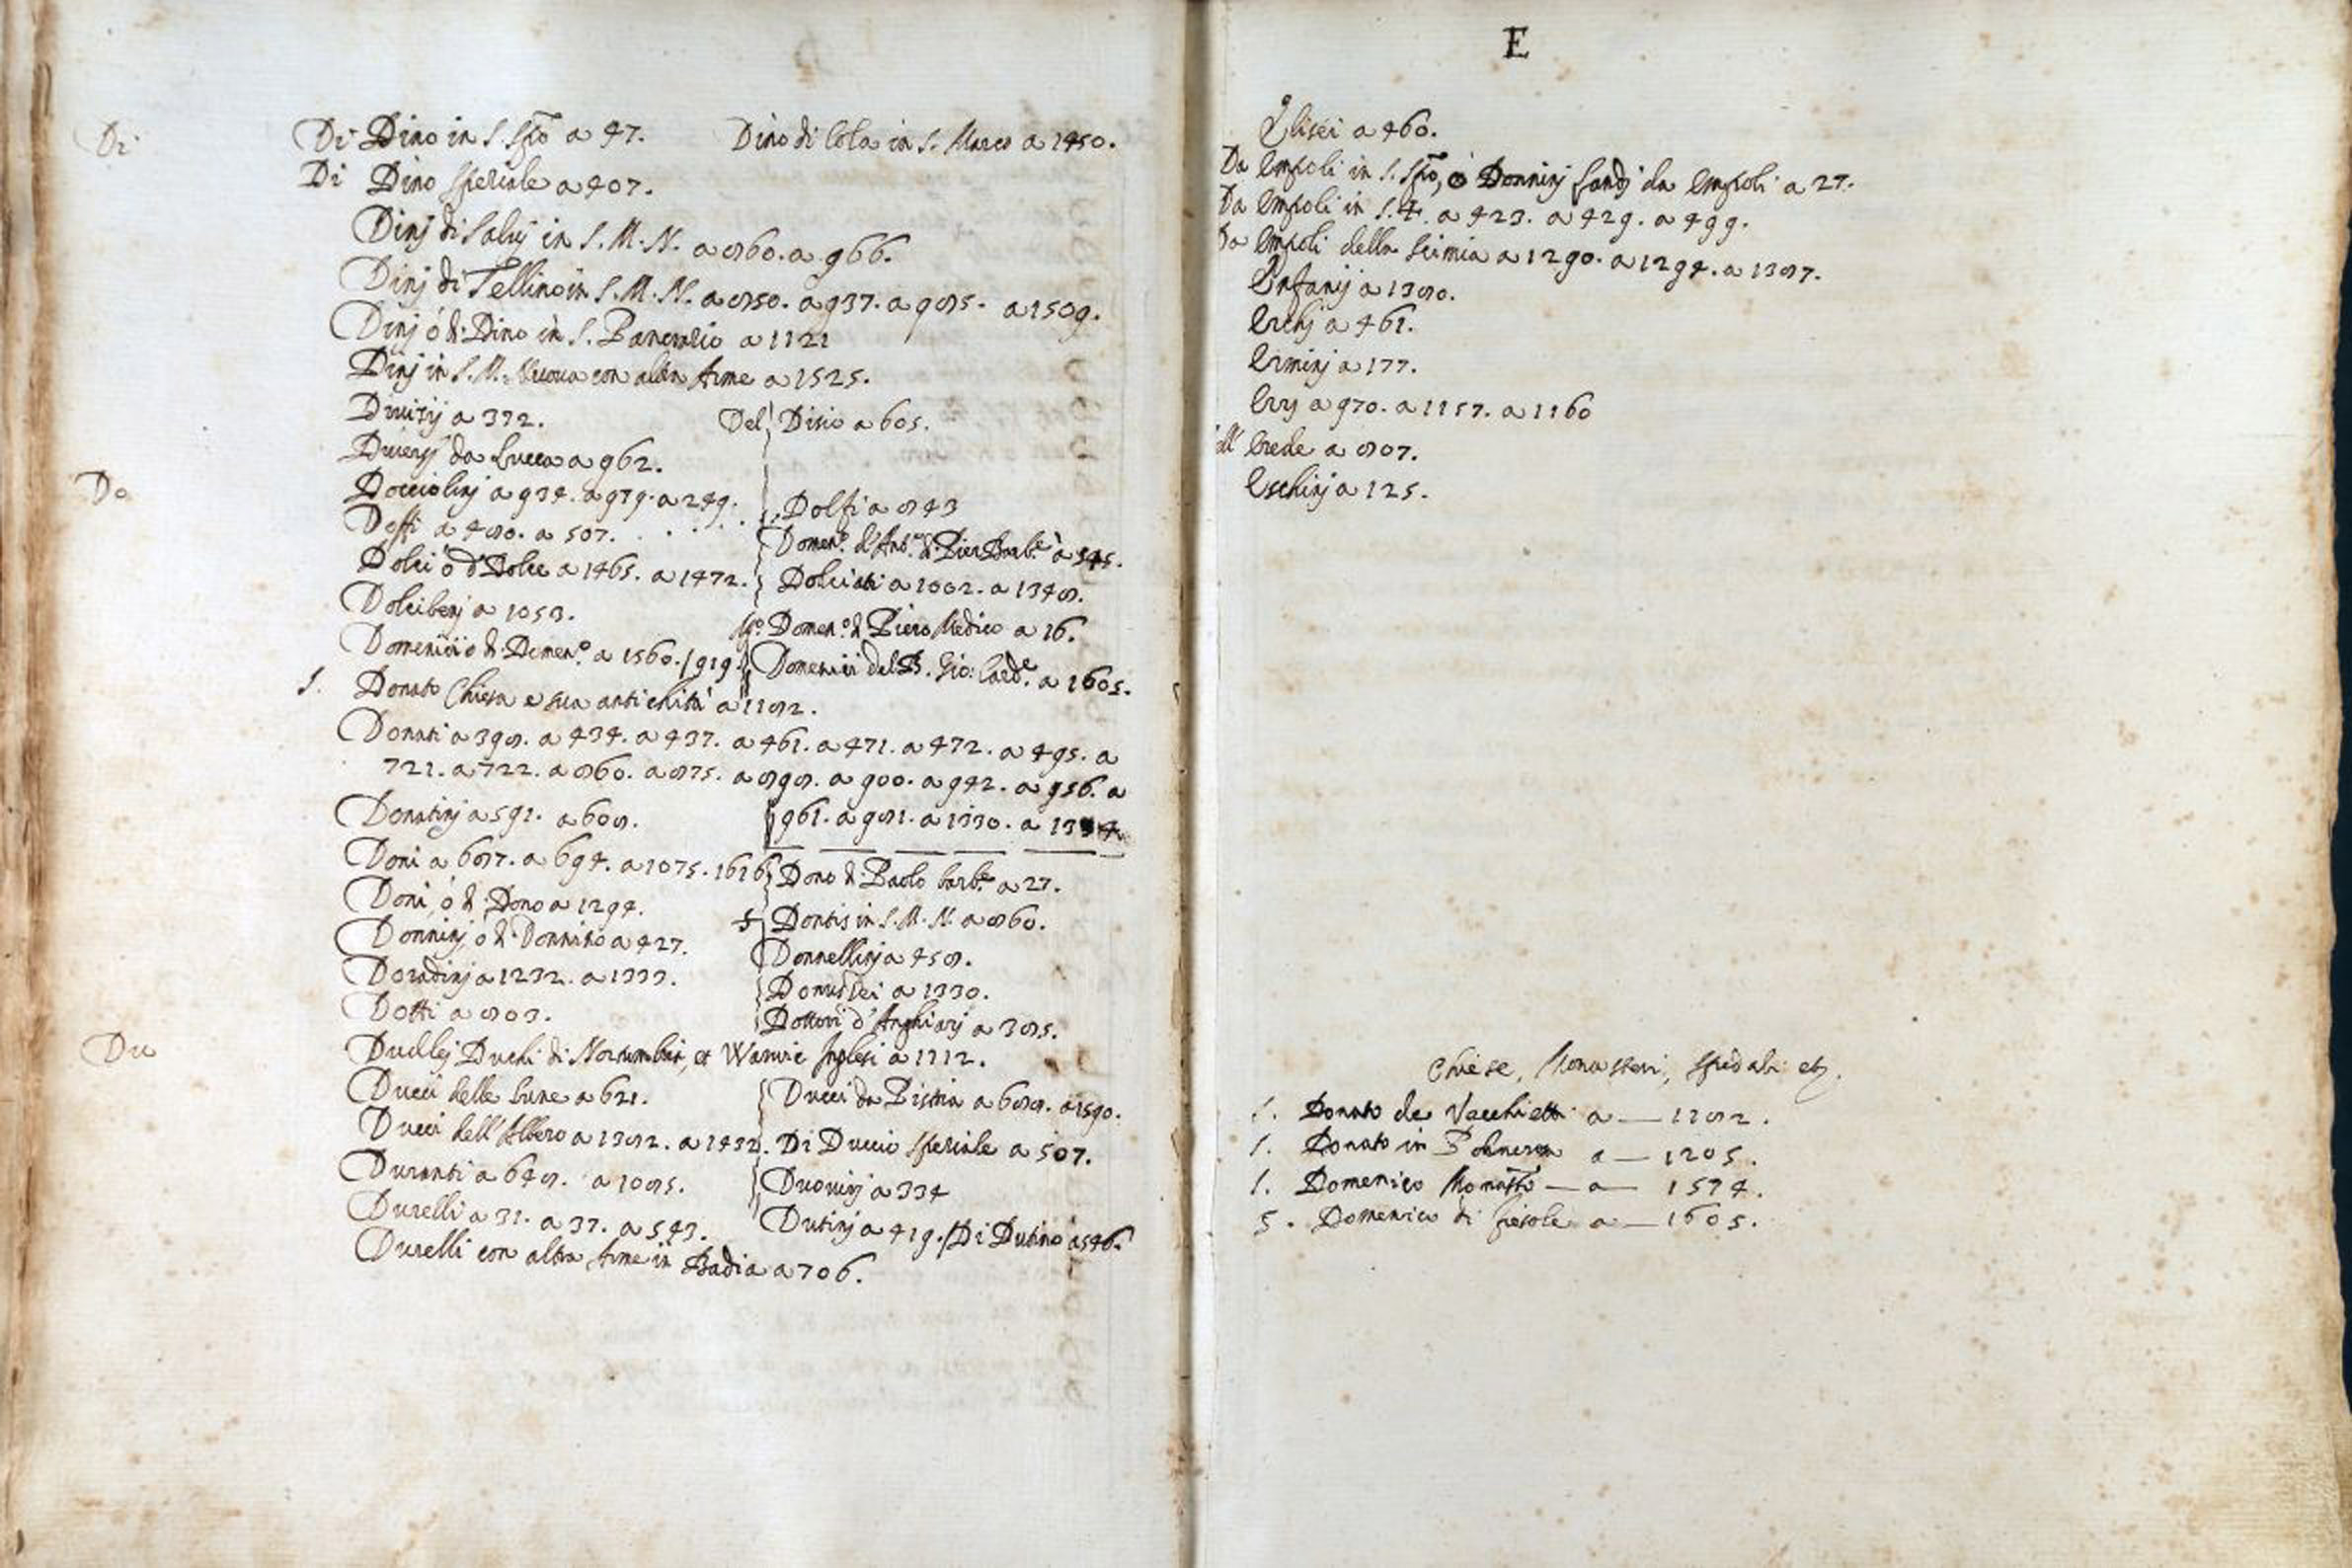 Di
Di Dino in S. Spo a 47.
Dino di Cola in S. Marco a 1450.
Di Dino speziale a 407.
Dinj di Salvj in S. M. N. a 860. a 966.
Dinj di Tellino in S. M. N. a 850. a 937. a 985. a 1509.
Dinj ó di Dino in S. Pancrazio a 1121
Dinj in S. M. Nuova con altra Arme a 1525.
Divizij a 372.
Del Disio a 605.
Diversj da Lucca a 962.
Do
Docciolinj a 934. a 979. a 249.
Dolfi a 843
Doffi a 480. a 507.
Domen.º d'Ant.º di Pier Barb.e a 545.
Dolci ò d Dolce a 1465. a 1472.
Dolciati a 1002. a 1348.
Dolcibenj a 1053.
M.º Domen.º di Piero Medico a 16.
Domenici o di Domen.º a 1560. / 919.
Domenici del B. Gio: Card.e a 1605.
S. Donato Chiesa e sua antichità a 1182.
Donati a 398. a 434. a 437. a 461. a 471. a 472. a 495. a
721. a 722. a 860. a 875. a 898. a 900. a 942. a 956. a
961. a 981. a 1330. a
Donatinj a 591. a 608.
Doni a 687. a 694. a 1075. 1616
Dono di Paolo barb.e a 27.
Doni, ó di Dono a 1294.
Dontis in S. M. N. a 860.
Donninj, ó di Donnino a 427.
Donnellinj a 458.
Doradinj a 1232. a 1333.
Donusdei a 1330.
Dotti a 803.
Dottori d'Anghiarj a 385.
Du
Dudlej Duchi di Nortumbria, et Warvic Inglesi a 1112.
Ducci delle Lune a 621.
Ducci da Pistoia a 688. a 1590.
Ducci dell'Albero a 1382. a 1432.
Di Duccio speziale a 507.
Duranti a 648. a 1085.
Duovinj a 334
Durelli a 31. a 37. a 543.
Dutinj a 419. / Di Dutino a 546.
Durelli con altra Arme in Badia a 706.
E
Elisei a 460.
Da Empoli in S. Spo, ó Donninj Sandj da Empoli a 27.
Da Empoli in S. +. a 423. a 429. a 499.
Da Empoli della Scimia a 1290. a 1294. a 1387.
Enfanij a 1380.
Erchj a 461.
Erminj a 177.
Errj a 970. a 1157. a 1160
all' Erede a 807.
Eschinj a 125.
Chiese, Monasteri, Spedali etc.
S. Donato de Vecchietti a — 1182.
S. Donato in Polverosa a — 1205.
S. Domenico Monastº — a — 1574.
S. Domenico di fiesole a — 1605.